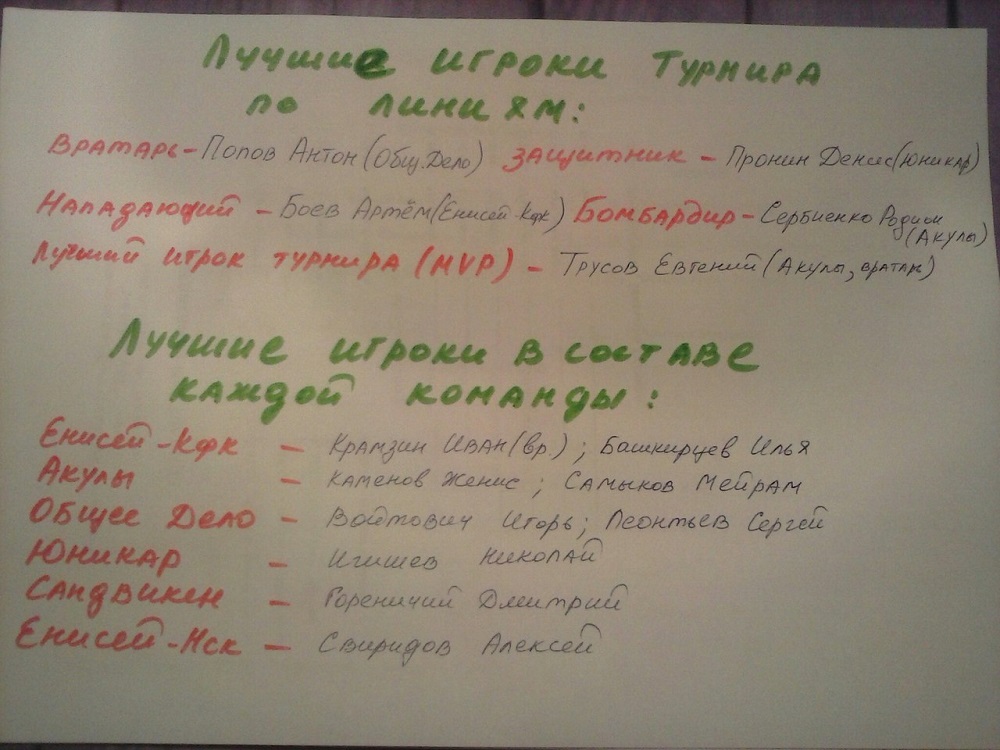 Лучшие игроки турнира
по линиям:
Вратарь - Попов Антон (Общ. Дело) Защитник - Пронин Денис (Юникар)
Нападающий - Боев Артём (Енисей-Кфк) Бомбардир - Сербиенко Родион
(Акулы)
Лучший игрок турнира (MVP) - Трусов Евгений (Акулы, вратарь)
Лучшие игроки в составе
каждой команды:
Енисей-Кфк - Крамзин Иван (вр.); Башкирцев Илья
Акулы - Каменов Женис; Самыков Мейрам
Общее Дело - Войтович Игорь; Леонтьев Сергей
Юникар - Игишев Николай
Сандвикен - Гореничий Дмитрий
Енисей-Нск - Свиридов Алексей